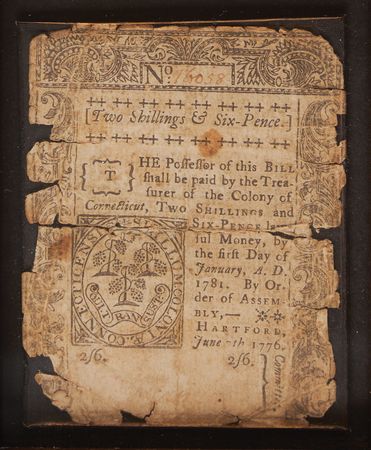 No. 16058
[Two Shillings & Six-Pence.]
THE Poſſeſſor of this BILL
ſhall be paid by the Trea-
ſurer of the Colony of
Connecticut, TWO SHILLINGS and
SIX-PENCE la
ful Money, by
the firſt Day of
January, A. D.
1781. By Or-
der of ASSEM-
BLY,—
HARTFORD,
June 7th 1776.
2ſ6. 2ſ6.
Committee
QUI TRAN SUST